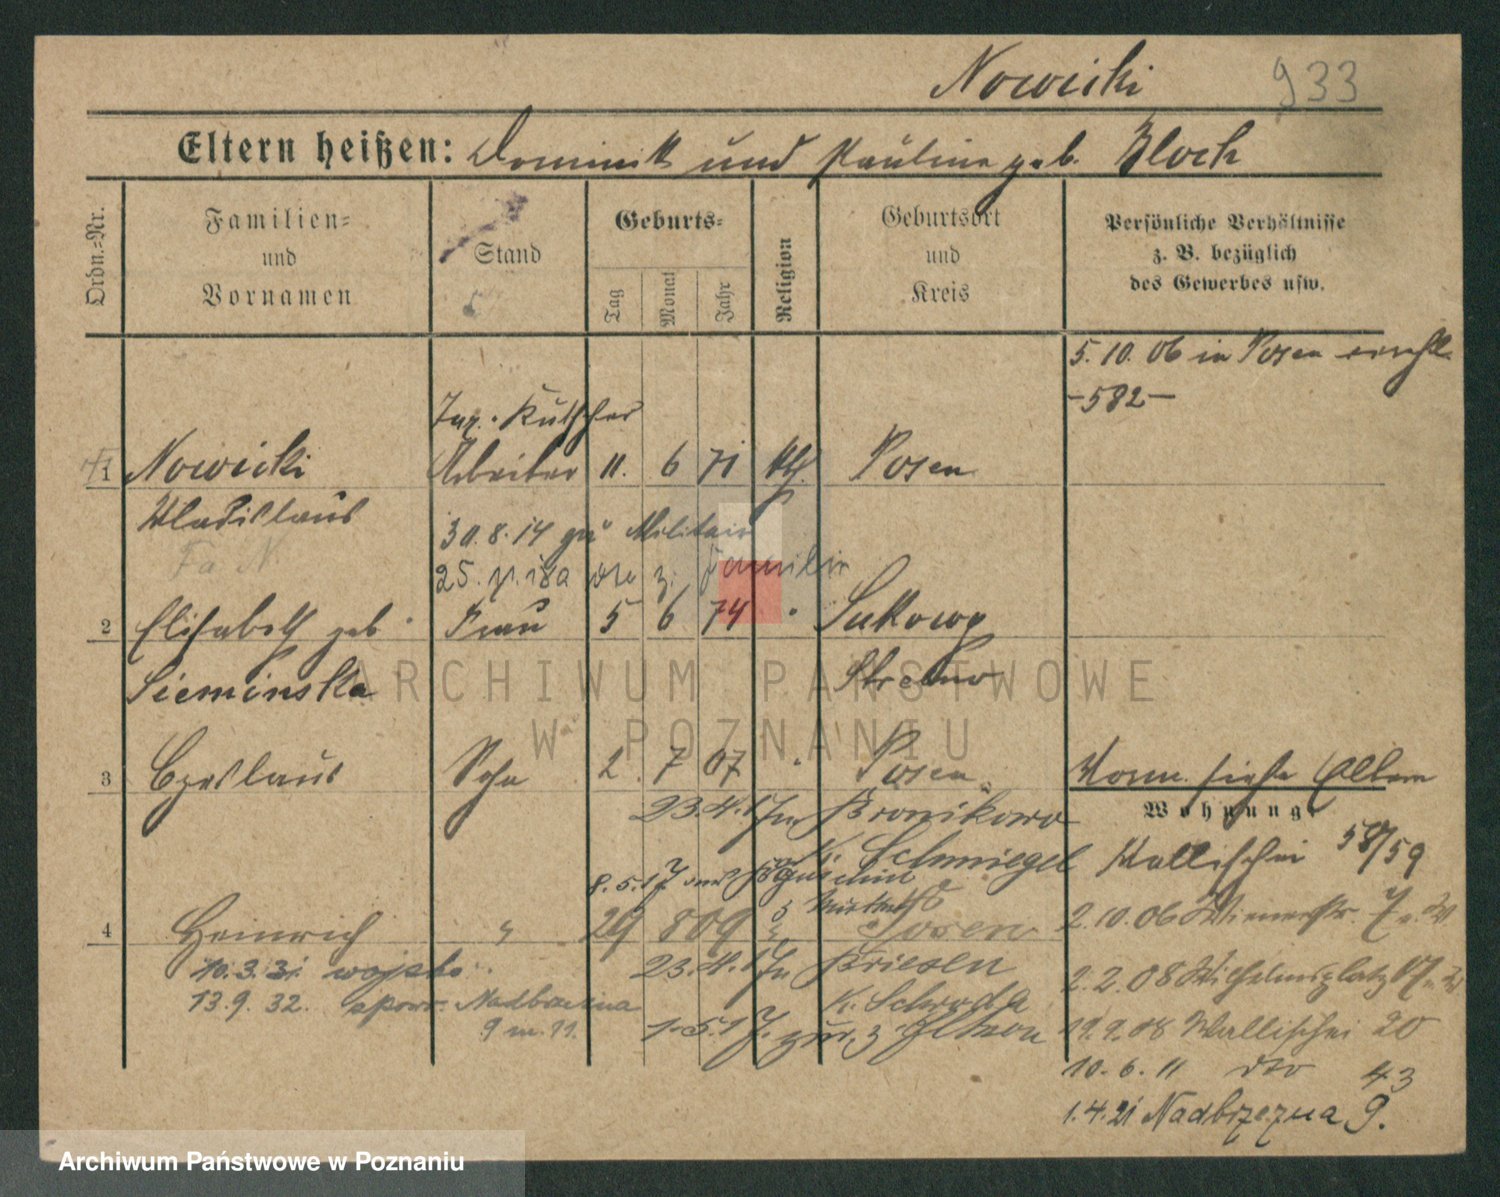 Nowicki 933
Eltern heißen: Dominik und Pauline geb. Bloch
Ordn.=Nr.
Familien=
und
Vornamen
Stand
Geburts=
Tag
Monat
Jahr
Religion
Geburtsort
und
Kreis
Persönliche Verhältnisse
z. B. bezüglich
des Gewerbes usw.
5. 10. 06 in Posen
-582-
Kutscher
1 Nowicki Arbeiter 11. 6 71 kth. Posen
Wladislaus
30.8.14 zu Militair
Fa N.
25. z. Familie
2 Elisabeth geb. Frau 5 6 74 " Sukowy
Sieminska Strelno
3 Czeslaus Sohn 2. 7 07 " Posen
Vorm. siehe Eltern
Wohnung:
23.4.17 in Bronikowo
K. Schmiegel
Wallischei 58/59
8.5.17
4 Heinrich " 29 8 09 " Posen
2.10.06 Wienerstr. 7
10.3.31 wojsko
23.4.17 in Briesen
2.2.08 Wilhelmsplatz
13.9.32. spow. Nadbrzezna
K. Schroda
9 m. 11.
1.5.17. zur.
19.9.08 Wallischei 20
10.6.11 dto 43
1.4.21 Nadbrzezna 9.
ARCHIWUM PAŃSTWOWE
W POZNANIU
Archiwum Państwowe w Poznaniu